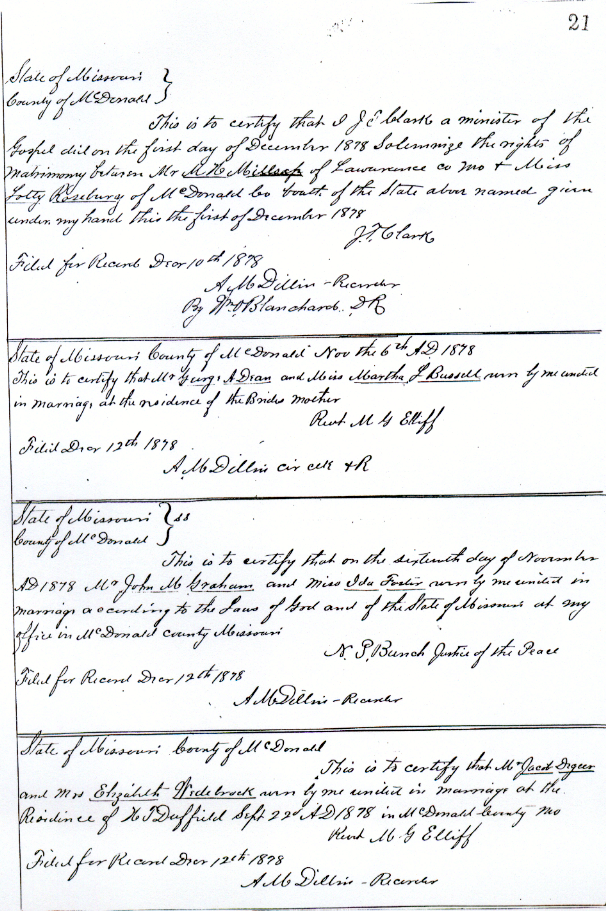 21
State of Missouri }
County of McDonald }
This is to certify that I J C Clark a minister of the
Gospel did on the first day of December 1878 Solemnize the rights of
matrimony between Mr M. H. Millsap of Lawurence co Mo & Miss
Lotty Roseburg of McDonald Co bouth of the State above named given
under my hand this the first of December 1878
J. T. Clark
Filed for Record Decr 10th 1878
A M Dillin - Recorder
By Wm Blanchard. D R
State of Missouri County of McDonald Nov the 6th AD 1878
This is to certify that Mr A Dean and Miss Martha J Bussell were by me united
in marriage at the residence of the Brides mother
Revt M G Elliff
Filed Decr 12th 1878
A. M Dillin cir clk & R
State of Missouri } ss
County of McDonald }
This is to certify that on the sixteenth day of November
AD 1878 Mr John M Graham and Miss Ida Foster were by me united in
marriage according to the Laws of God and of the State of Missouri at my
office in McDonald county Missouri
N. P. Bunch Justice of the Peace
Filed for Record Decr 12th 1878
A M Dillin - Recorder
State of Missouri County of McDonald
This is to certify that Mr Jacob Digeer
and Mrs Elizabeth were by me united in marriage at the
Residence of Duffield Sept 22d AD 1878 in McDonald County Mo
Revt M. G Elliff
Filed for Record Decr 12th 1878
A M Dillin - Recorder